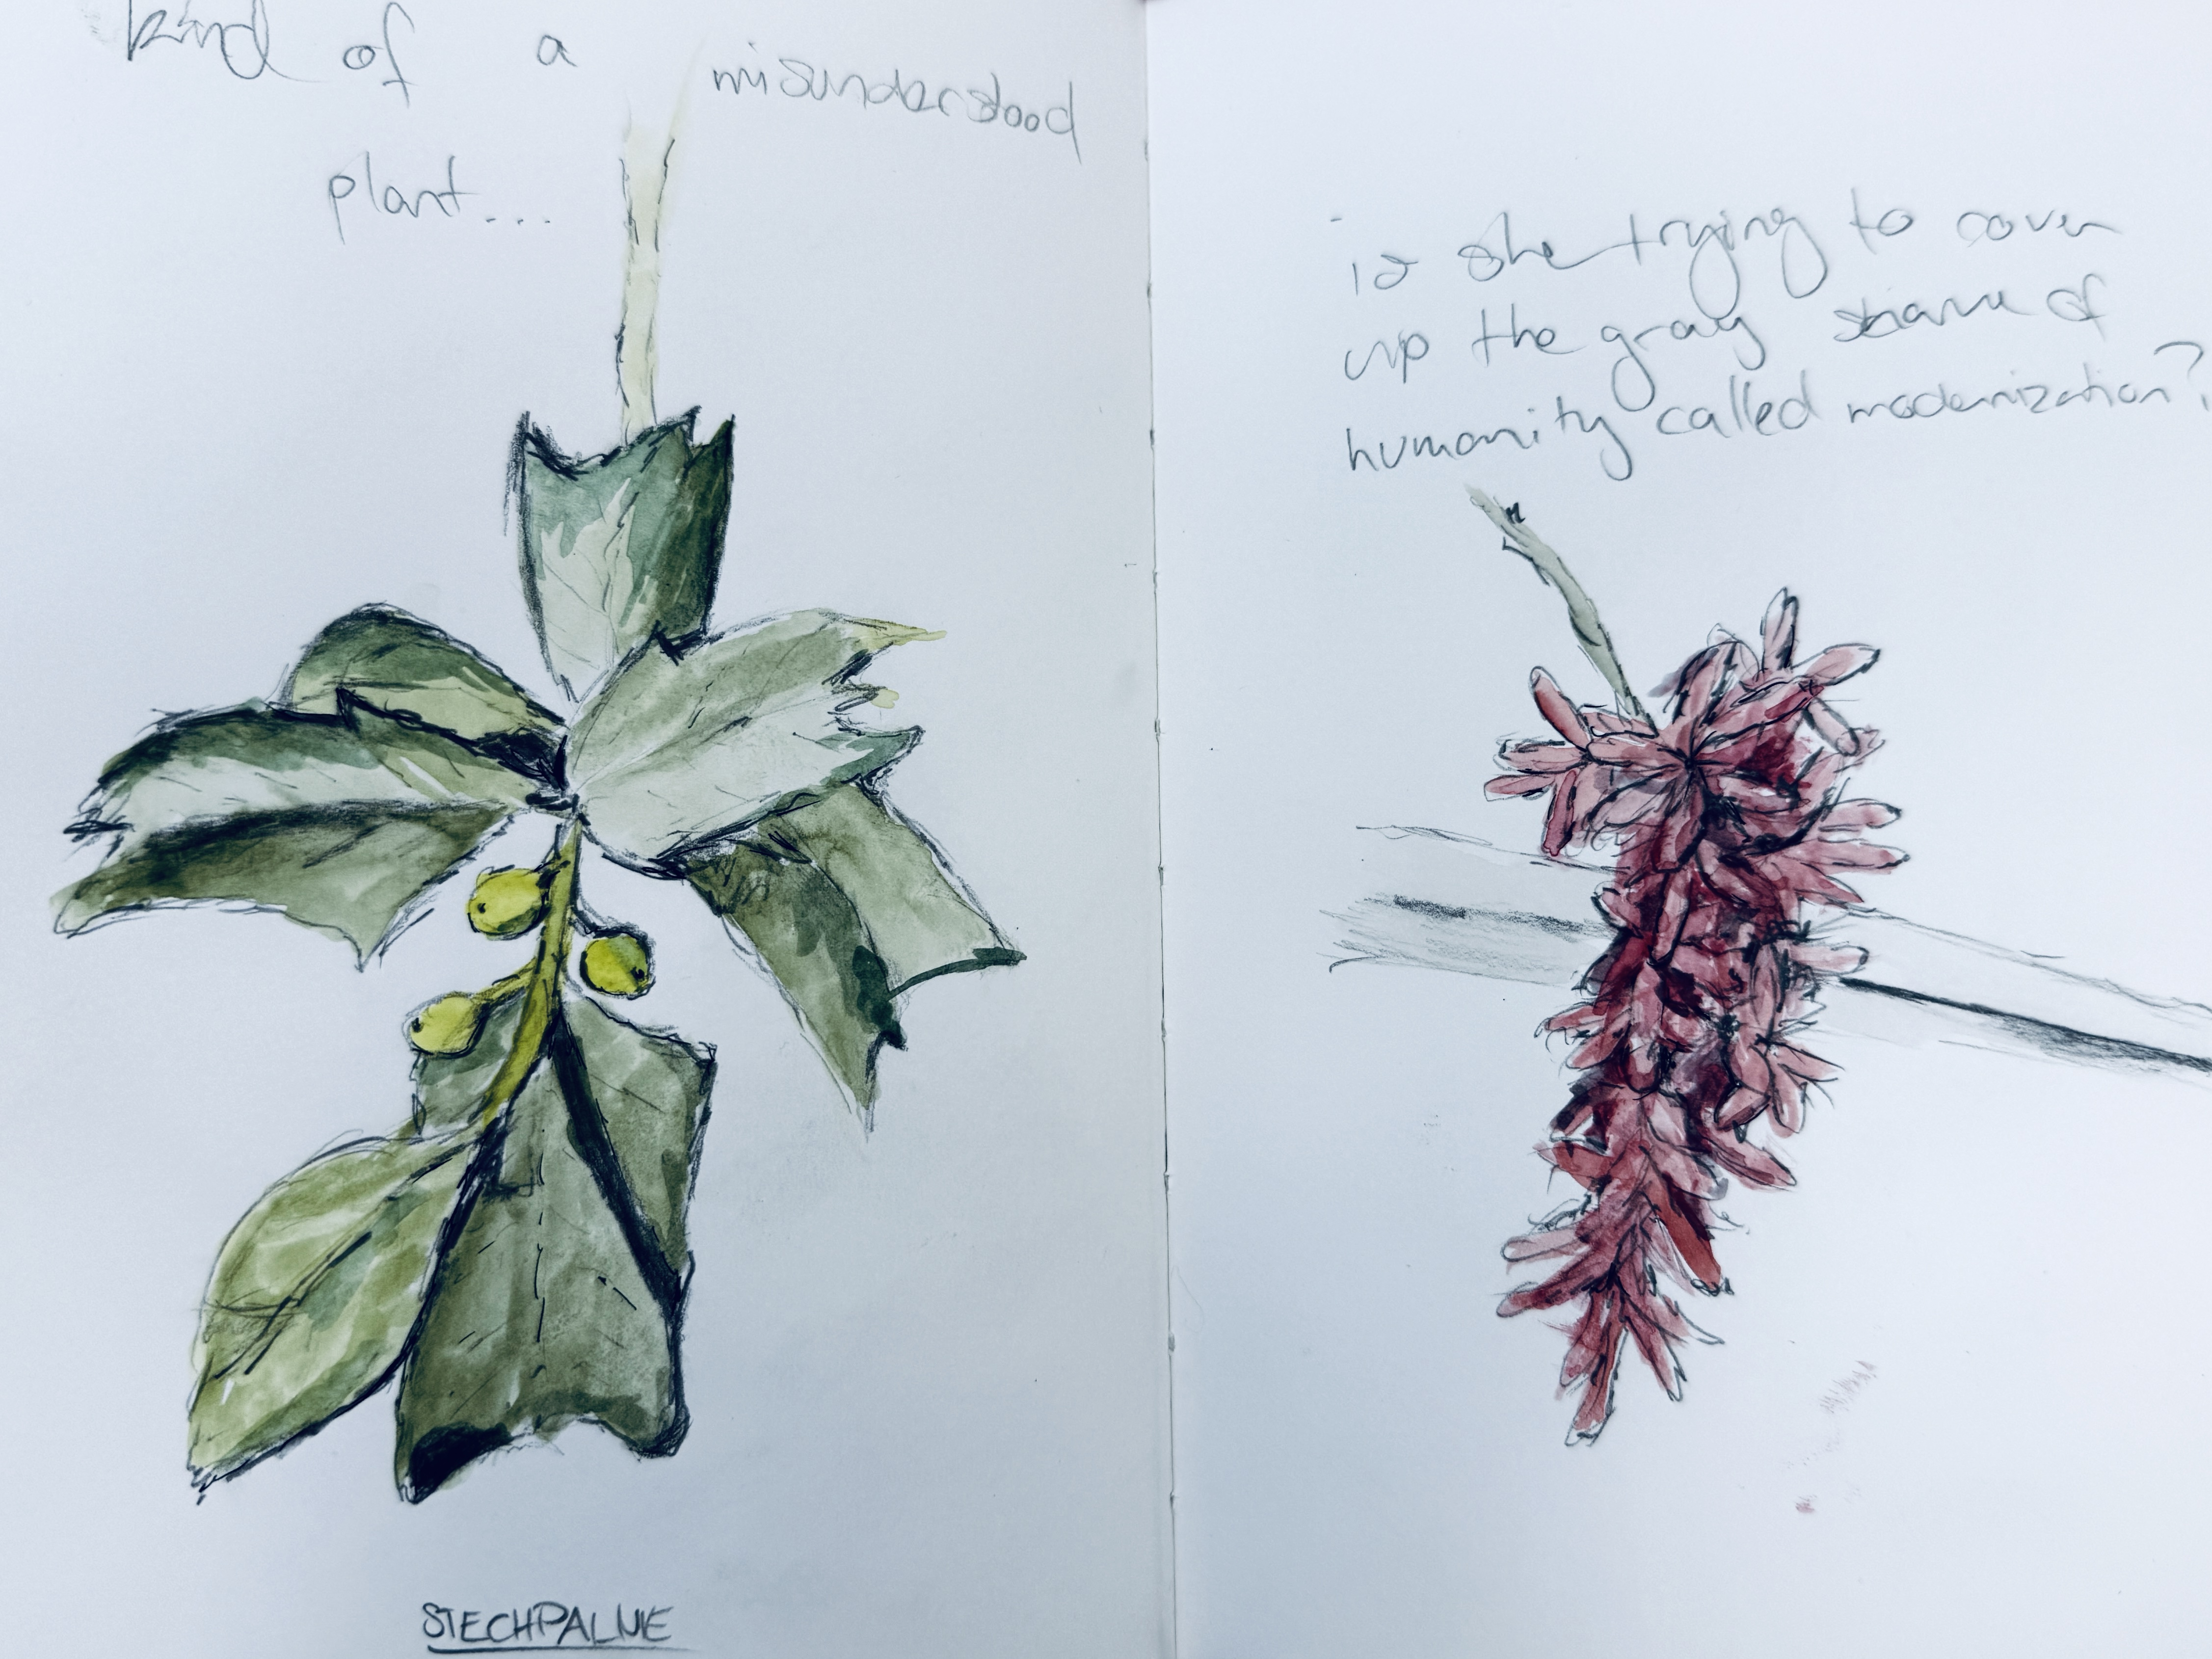 kind of a misunderstood
plant...
STECHPALME
is she trying to cover
up the gray shame of
humanity called modernization?